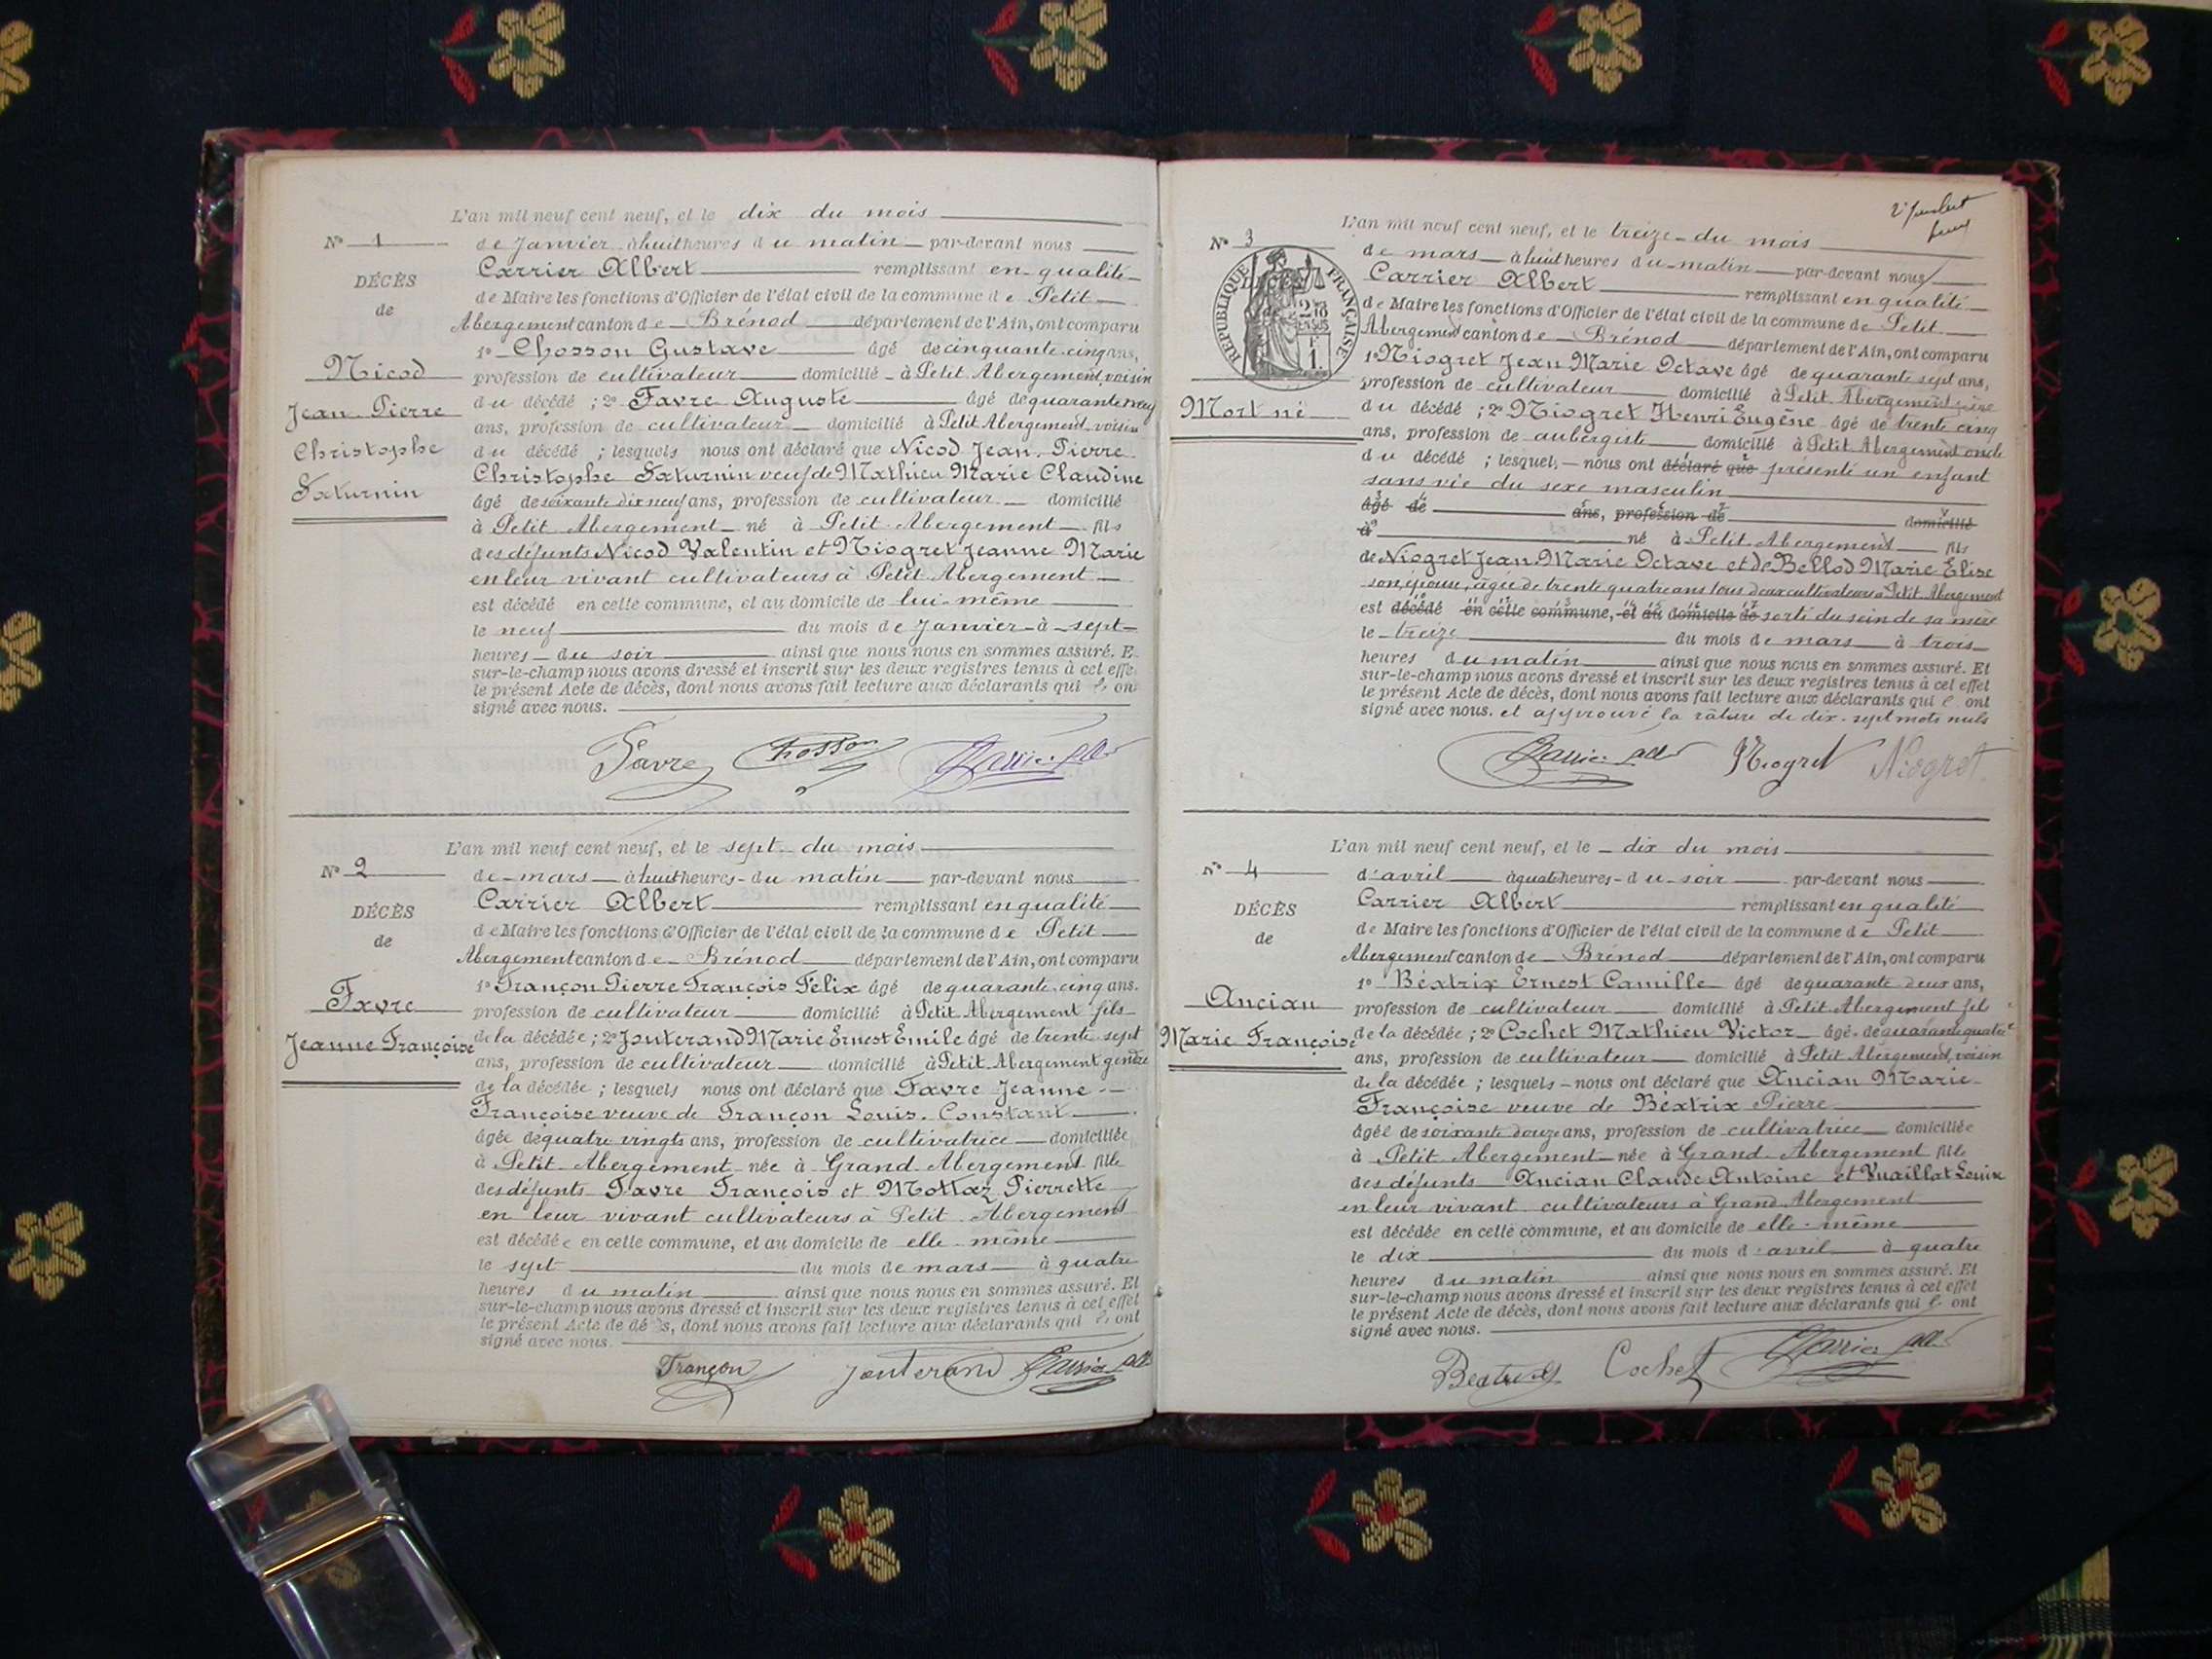 L'an mil neuf cent neuf, et le dix du mois
N° 1
de Janvier à huit heures du matin par-devant nous
DÉCÈS
Carrier Albert remplissant en qualité
de
de Maire les fonctions d'Officier de l'état civil de la commune de Petit
Abergement canton de Brénod département de l'Ain, ont comparu
1° Chosson Gustave âgé de cinquante cinq ans,
Nicod
profession de cultivateur domicilié à Petit Abergement, voisin
Jean Pierre
du décédé ; 2° Favre Auguste âgé de quarante neuf
ans, profession de cultivateur domicilié à Petit Abergement, voisin
Christophe
du décédé ; lesquels nous ont déclaré que Nicod Jean Pierre
Saturnin
Christophe Saturnin veuf de Mathieu Marie Claudine
âgé de soixante dix neuf ans, profession de cultivateur domicilié
à Petit Abergement né à Petit Abergement fils
des défunts Nicod Valentin et Niogret Jeanne Marie
en leur vivant cultivateurs à Petit Abergement
est décédé en cette commune, et au domicile de lui-même
le neuf du mois de Janvier à sept
heures du soir ainsi que nous nous en sommes assuré. E
sur-le-champ nous avons dressé et inscrit sur les deux registres tenus à cet effe
le présent Acte de décès, dont nous avons fait lecture aux déclarants qui l' on
signé avec nous.
Favre Chosson
L'an mil neuf cent neuf, et le sept du mois
N° 2
de mars à huit heures du matin par-devant nous
DÉCÈS
Carrier Albert remplissant en qualité
de
de Maire les fonctions d'Officier de l'état civil de la commune de Petit
Abergement canton de Brénod département de l'Ain, ont comparu
1° Françon Pierre François Félix âgé de quarante cinq ans.
Favre
profession de cultivateur domicilié à Petit Abergement fils
Jeanne Françoise
de la décédée ; 2° Jouterand Marie Ernest Emile âgé de trente sept
ans, profession de cultivateur domicilié à Petit Abergement gendre
de la décédée ; lesquels nous ont déclaré que Favre Jeanne
Françoise veuve de Françon Louis Constant
âgée de quatre vingts ans, profession de cultivatrice domiciliée
à Petit Abergement née à Grand Abergement fille
des défunts Favre François et Mottaz Pierrette
en leur vivant cultivateurs à Petit Abergement
est décédée en cette commune, et au domicile de elle-même
le sept du mois de mars à quatre
heures du matin ainsi que nous nous en sommes assuré. Et
sur-le-champ nous avons dressé et inscrit sur les deux registres tenus à cet effet
le présent Acte de décès, dont nous avons fait lecture aux déclarants qui l' ont
signé avec nous.
Françon Jouterand
L'an mil neuf cent neuf, et le treize du mois
N° 3
de mars à huit heures du matin par-devant nous
RÉPUBLIQUE FRANÇAISE
Carrier Albert remplissant en qualité
de Maire les fonctions d'Officier de l'état civil de la commune de Petit
Abergement canton de Brénod département de l'Ain, ont comparu
1° Niogret Jean Marie Octave âgé de quarante sept ans,
profession de cultivateur domicilié à Petit Abergement père
Mort né
du décédé ; 2° Niogret Henri Eugène âgé de trente cinq
ans, profession de aubergiste domicilié à Petit Abergement oncle
du décédé ; lesquels nous ont déclaré que présenté un enfant
sans vie du sexe masculin
âgé de ans, profession de domicilié
à né à Petit Abergement fils
de Niogret Jean Marie Octave et de Bellod Marie Elise
son épouse, âgée de trente quatre ans tous deux cultivateurs à Petit Abergement
est décédé en cette commune, et au domicile de sorti du sein de sa mère
le treize du mois de mars à trois
heures du matin ainsi que nous nous en sommes assuré. Et
sur-le-champ nous avons dressé et inscrit sur les deux registres tenus à cet effet
le présent Acte de décès, dont nous avons fait lecture aux déclarants qui l' ont
signé avec nous. et approuvé la râture de dix-sept mots nuls
Niogret Niogret
L'an mil neuf cent neuf, et le dix du mois
N° 4
d'avril à quatre heures du soir par-devant nous
DÉCÈS
Carrier Albert remplissant en qualité
de
de Maire les fonctions d'Officier de l'état civil de la commune de Petit
Abergement canton de Brénod département de l'Ain, ont comparu
1° Béatrix Ernest Camille âgé de quarante deux ans,
Ancian
profession de cultivateur domicilié à Petit Abergement fils
Marie Françoise
de la décédée ; 2° Cochet Mathieu Victor âgé de quarante quatre
ans, profession de cultivateur domicilié à Petit Abergement, voisin
de la décédée ; lesquels nous ont déclaré que Ancian Marie
Françoise veuve de Béatrix Pierre
âgée de soixante douze ans, profession de cultivatrice domiciliée
à Petit Abergement née à Grand Abergement fille
des défunts Ancian Claude Antoine et Vuaillat Louise
en leur vivant cultivateurs à Grand Abergement
est décédée en cette commune, et au domicile de elle-même
le dix du mois d'avril à quatre
heures du matin ainsi que nous nous en sommes assuré. Et
sur-le-champ nous avons dressé et inscrit sur les deux registres tenus à cet effet
le présent Acte de décès, dont nous avons fait lecture aux déclarants qui l' ont
signé avec nous.
Béatrix Cochet